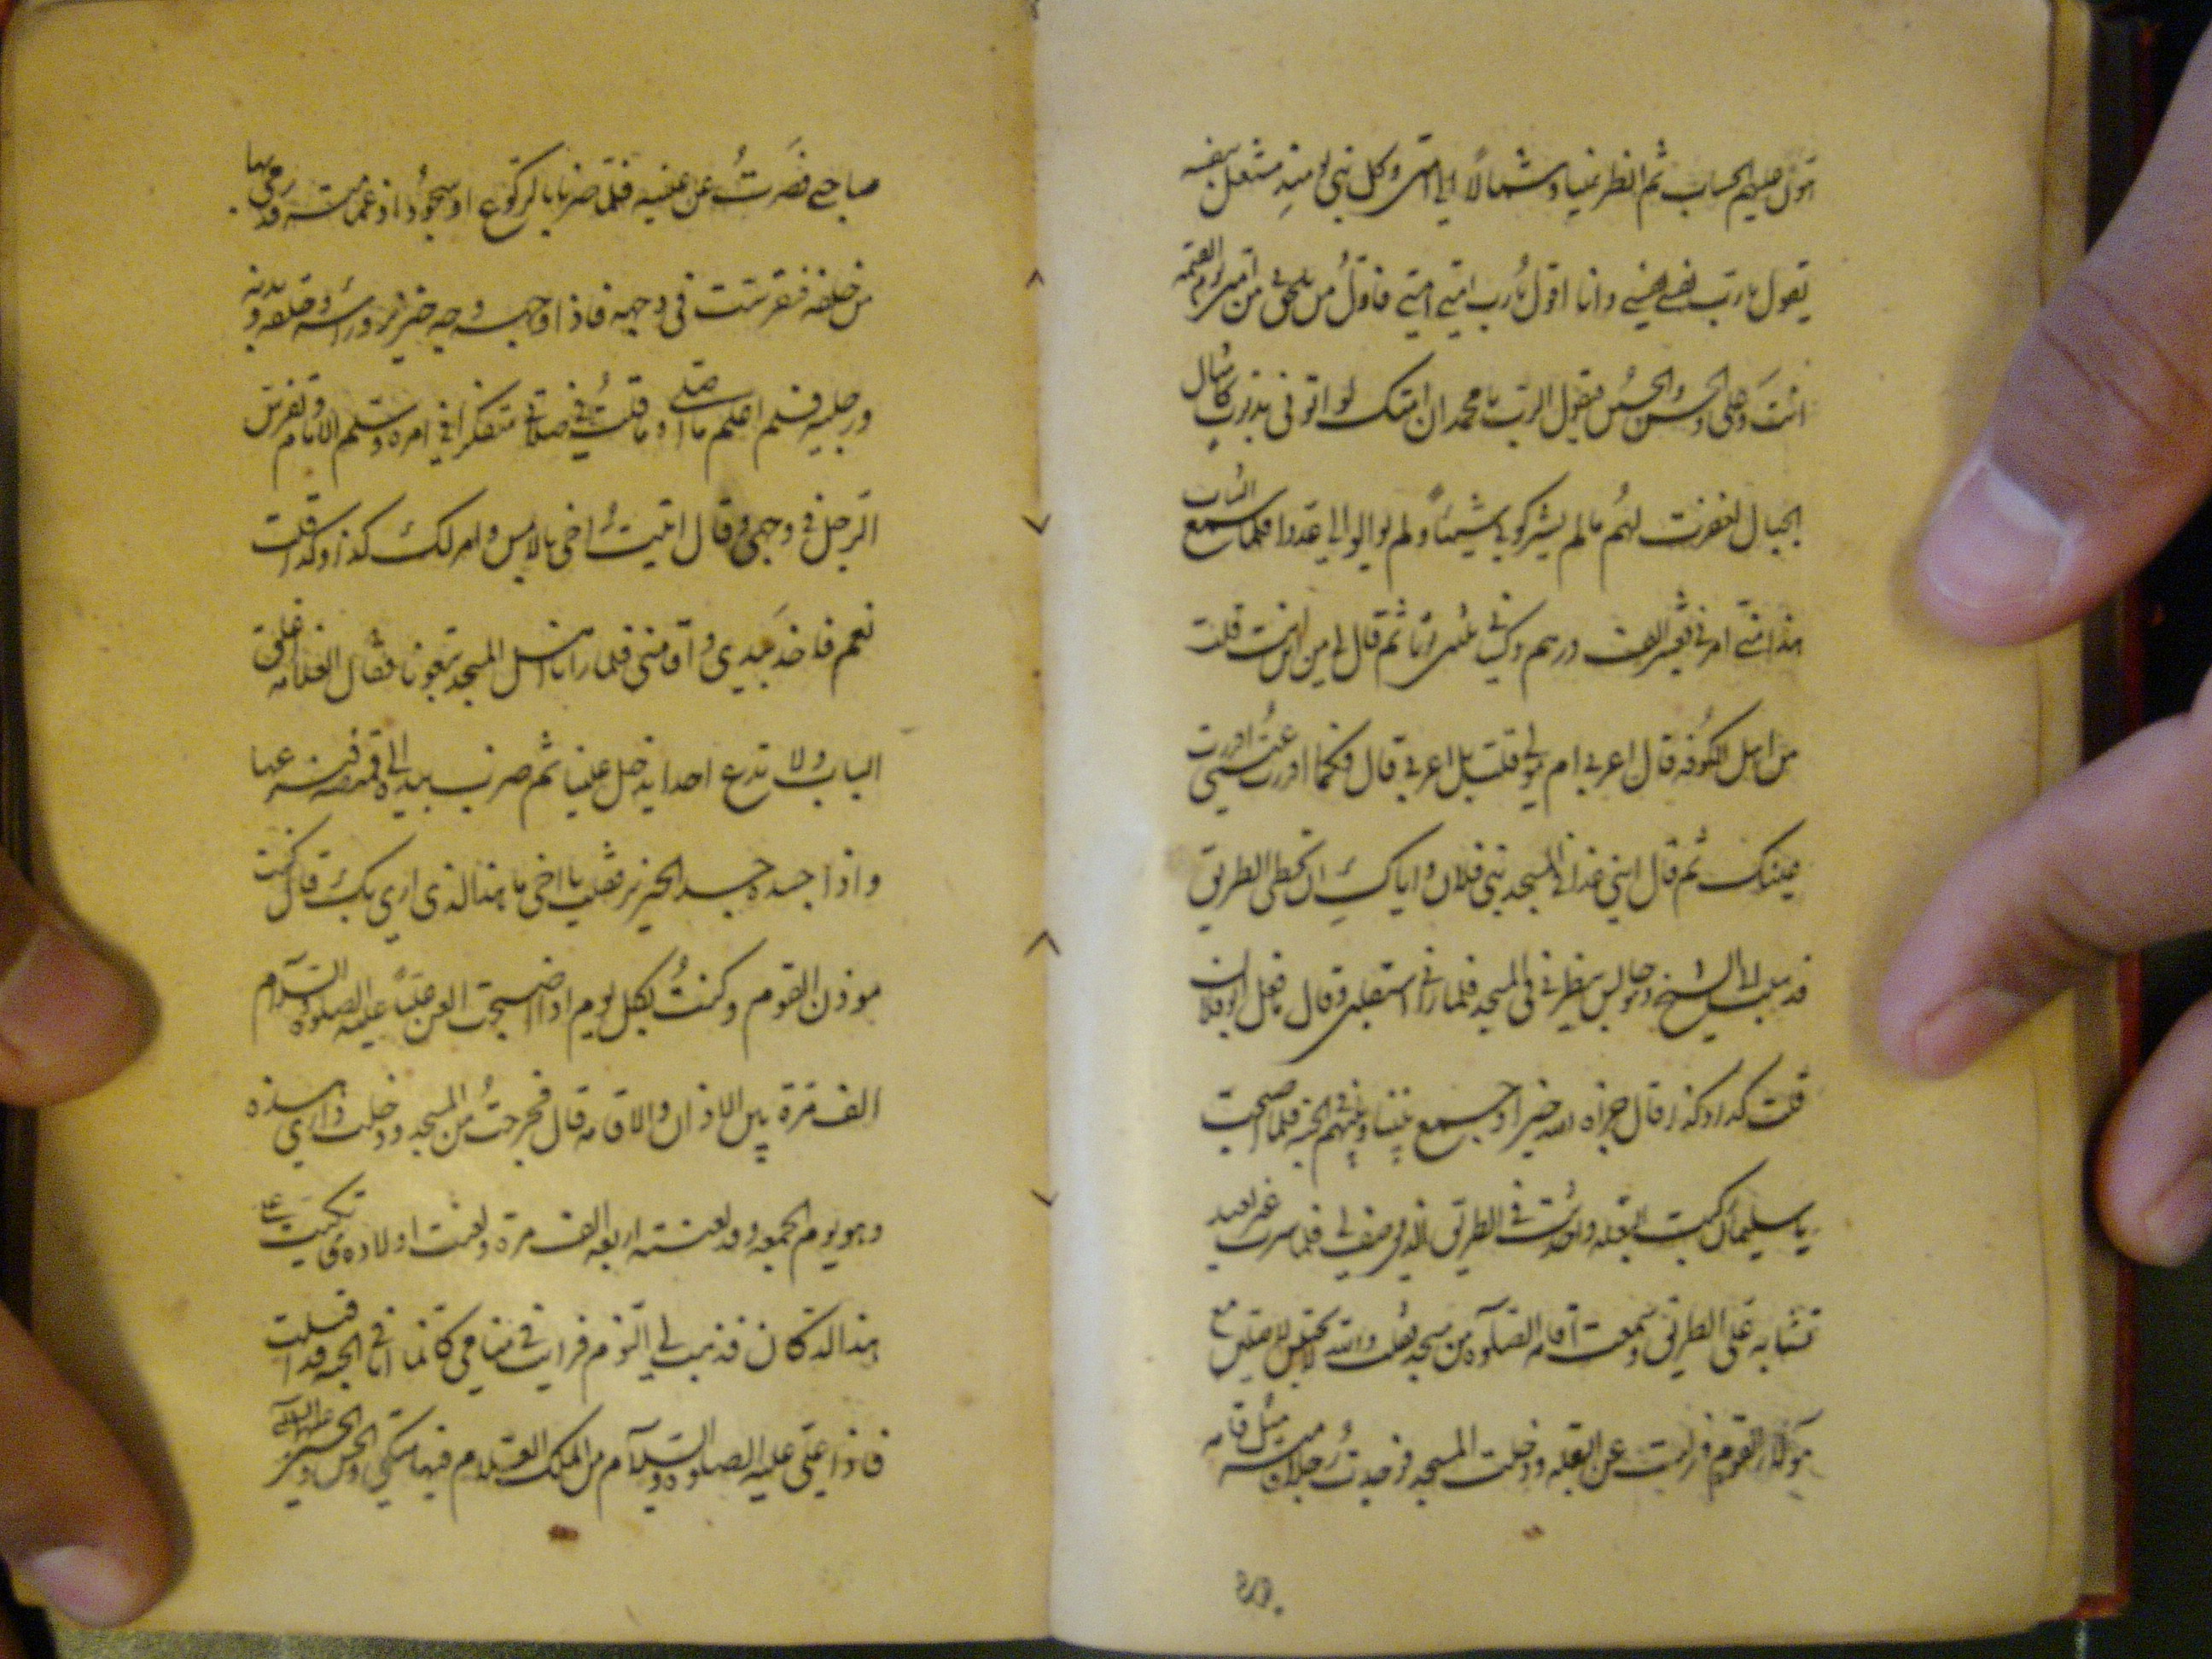 هول عليهم الحساب ثم انظر يمينا وشمالاً الى امتى وكل نبى يومئذٍ مشتغل بنفسه
يقول يا رب نفسى نفسى وانا اقول يا رب امتى امتى فاول من يلحق من امتى يوم القيمه
انتَ وعلى والحسن والحسين فيقول الرب يا محمد ان امتك لو اتونى بذنوبٍ كامثال
الجبال لغفرت لهم ما لم يشركو بى شيئاً ولم يوالوا لى عدوا فلما سمع الشاب
هذا منى امر لى بعشر الف درهم وكسانى ثلثين ثوبا ثم قال لى من اين انت قلت
من اهل الكوفه قال اعربى ام مولى قلت بل اعربى قال فكما اقررت عينى اقررت
عينك ثم قال ايتنى غدا فى المسجد بنى فلان واياكِ ان تخطى الطريق
فذهبت الى الشيخ وهو جالس ينظرنى فى المسجد فلما رآنى استقبلنى وقال ما فعل ابو فلان
قلت كذا وكذا قال جزاه الله خيرا وجمع بيننا وبينهم فى الجنة فلما اصبحت
يا سليمان ركبت البغله واخذت فى الطريق الذى وصف لى فلما سرت غير بعيد
تشابه على الطريق وسمعت اقامه الصلوة من مسجد فقلت والله لاصلين مع
هؤلاء القوم فنزلت عن البغله ودخلت المسجد فوجدتُ رجلا قامته مثل قامه
صاحبى فصَرتُ عن يمينه فلما صرنا بالركوع او سجودُ اذ عمامته قد رمى بها
من خلفه فتفرست فى وجهه فاذا وجهه وجه خنزير وراسه وحلقه ويديه
ورجليه فلم اعلم ما صلى وما قلتُ فى صلاتى متفكرا فى امره وسلم الامام وتفرس
الرجل فى وجهى وقال اتيت اخى بالامس وامر لك كذا وكذا قلت
نعم فاخذَ بيدى واقامنى فلما رانا اهل المسجد تبعونا فقال لغلامه اغلق
الباب ولا تدع احدا يدخل علينا ثم ضرب بيده الى قميصه فنزعها
واذا جسده جسد الخنزير فقلت يا اخى ما هذا الذى ارى بك قال كنت
موذن القوم وكنتُ بكل يوم اذا اصبحت العن علياً عليه الصلوة والسلام
الف مرة بين الاذان والاقامه قال فخرجتُ من المسجد ودخلت دارى هذه
وهو يوم الجمعه وقد لعنته اربعه الف مرة ولعنت اولاده تكيت على
هذا الدكان فذهب بى النوم فرايت فى منامى كانما انا فى الجنة قد اقبلت
فاذا على عليه الصلوة والسلام من الملك العلام فيها متكى والحسن والحسين عليهما السلام